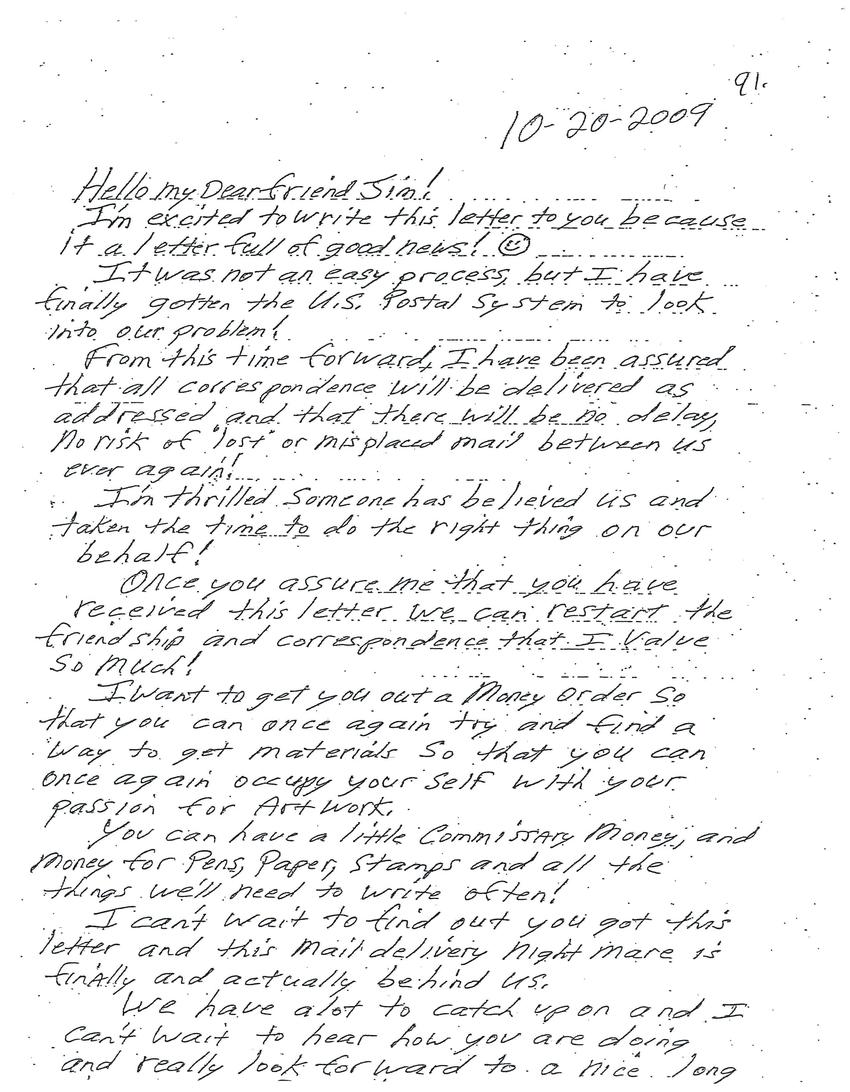 91.
10-20-2009
Hello my Dear friend Jim!
I'm excited to write this letter to you because
it a letter full of good news! ☺
It was not an easy process, but I have
finally gotten the U.S. Postal System to look
into our problem!
From this time forward, I have been assured
that all correspondence will be delivered as
addressed and that there will be no delay,
No risk of "lost" or misplaced mail between us
ever again!
I'm thrilled Someone has believed us and
taken the time to do the right thing on our
behalf!
Once you assure me that you have
received this letter we can restart the
friendship and correspondence that I Value
So Much!
I want to get you out a Money Order So
that you can once again try and find a
Way to get materials So that you can
once again occupy your Self with your
passion for Artwork.
You can have a little Commissary Money, and
Money for Pens, Paper, Stamps and all the
things we'll need to write often!
I can't wait to find out you got this
letter and this Mail delivery Night mare is
finally and actually behind us.
We have alot to catch up on and I
can't wait to hear how you are doing
and really look forward to a nice long